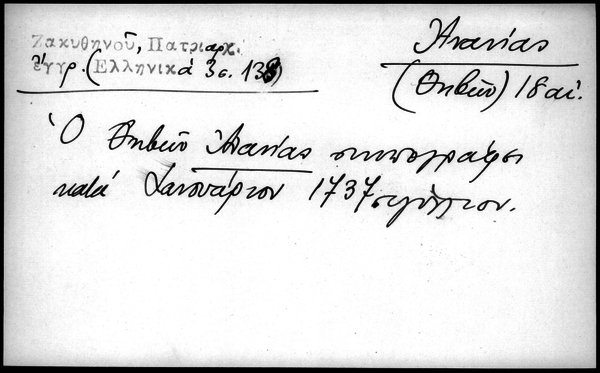 Ζακυθηνοῦ, Πατριαρχ.
ἔγγρ. (Ἑλληνικά 3 σ. 138)
Ἀνανίας
(Θηβῶν) 18 αἰ.
Ὁ Θηβῶν Ἀνανίας συνυπογράφει
κατά Ἰανουάριον 1737 σιγίλλιον.